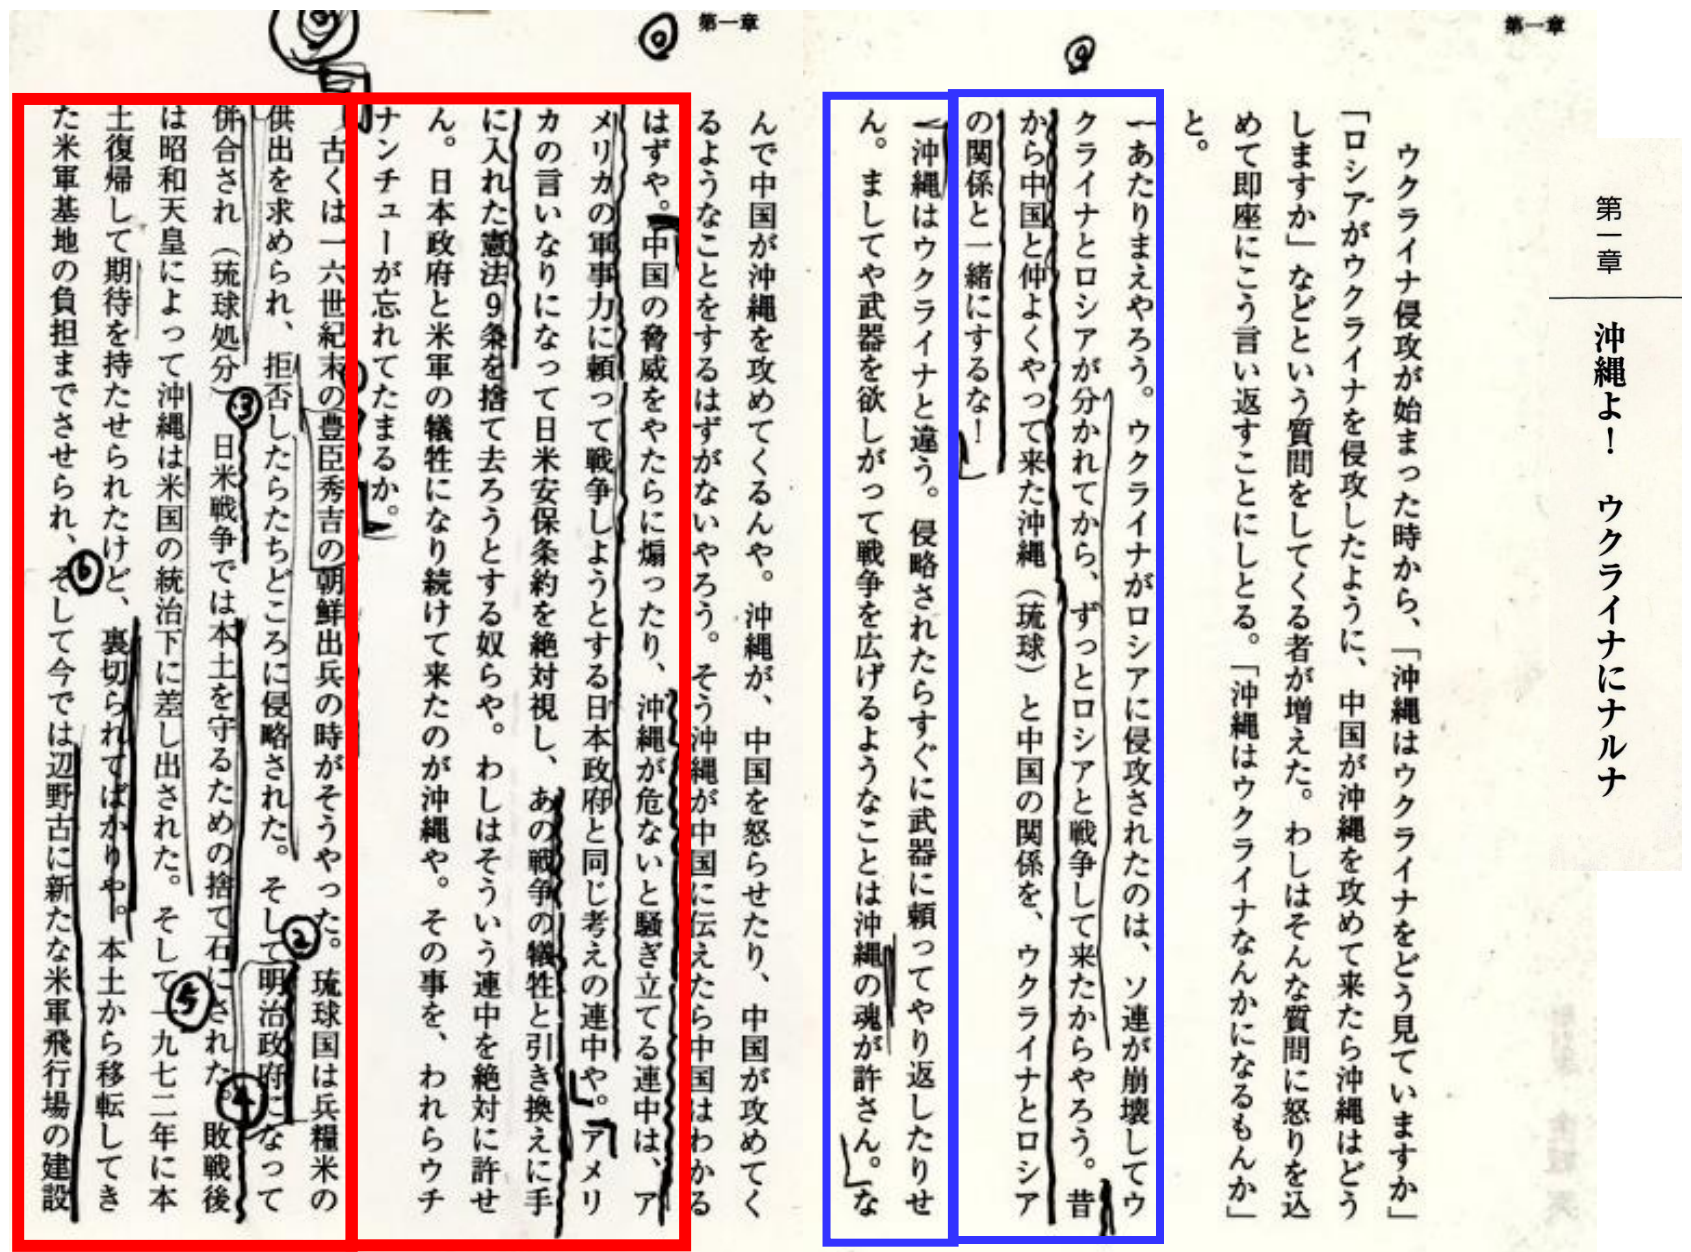 第一章
沖縄よ！　ウクライナにナルナ
第一章
ウクライナ侵攻が始まった時から、「沖縄はウクライナをどう見ていますか」
「ロシアがウクライナを侵攻したように、中国が沖縄を攻めて来たら沖縄はどう
しますか」などという質問をしてくる者が増えた。わしはそんな質問に怒りを込
めて即座にこう言い返すことにしとる。「沖縄はウクライナなんかになるもんか」
と。
あたりまえやろう。ウクライナがロシアに侵攻されたのは、ソ連が崩壊してウ
クライナとロシアが分かれてから、ずっとロシアと戦争して来たからやろう。昔
から中国と仲よくやって来た沖縄（琉球）と中国の関係を、ウクライナとロシア
の関係と一緒にするな！
沖縄はウクライナと違う。侵略されたらすぐに武器に頼ってやり返したりせ
ん。ましてや武器を欲しがって戦争を広げるようなことは沖縄の魂が許さん。な
第一章
んで中国が沖縄を攻めてくるんや。沖縄が、中国を怒らせたり、中国が攻めてく
るようなことをするはずがないやろう。そう沖縄が中国に伝えたら中国はわかる
はずや。中国の脅威をやたらに煽ったり、沖縄が危ないと騒ぎ立てる連中は、ア
メリカの軍事力に頼って戦争しようとする日本政府と同じ考えの連中や。アメリ
カの言いなりになって日米安保条約を絶対視し、あの戦争の犠牲と引き換えに手
に入れた憲法9条を捨て去ろうとする奴らや。わしはそういう連中を絶対に許せ
ん。日本政府と米軍の犠牲になり続けて来たのが沖縄や。その事を、われらウチ
ナンチューが忘れてたまるか。
古くは一六世紀末の豊臣秀吉の朝鮮出兵の時がそうやった。琉球国は兵糧米の
供出を求められ、拒否したらたちどころに侵略された。そして明治政府になって
併合され（琉球処分）③日米戦争では本土を守るための捨て石にされた。敗戦後
は昭和天皇によって沖縄は米国の統治下に差し出された。そして一九七二年に本
土復帰して期待を持たせられたけど、裏切られてばかりや。本土から移転してき
た米軍基地の負担までさせられ、そして今では辺野古に新たな米軍飛行場の建設
②
④
⑤
⑥